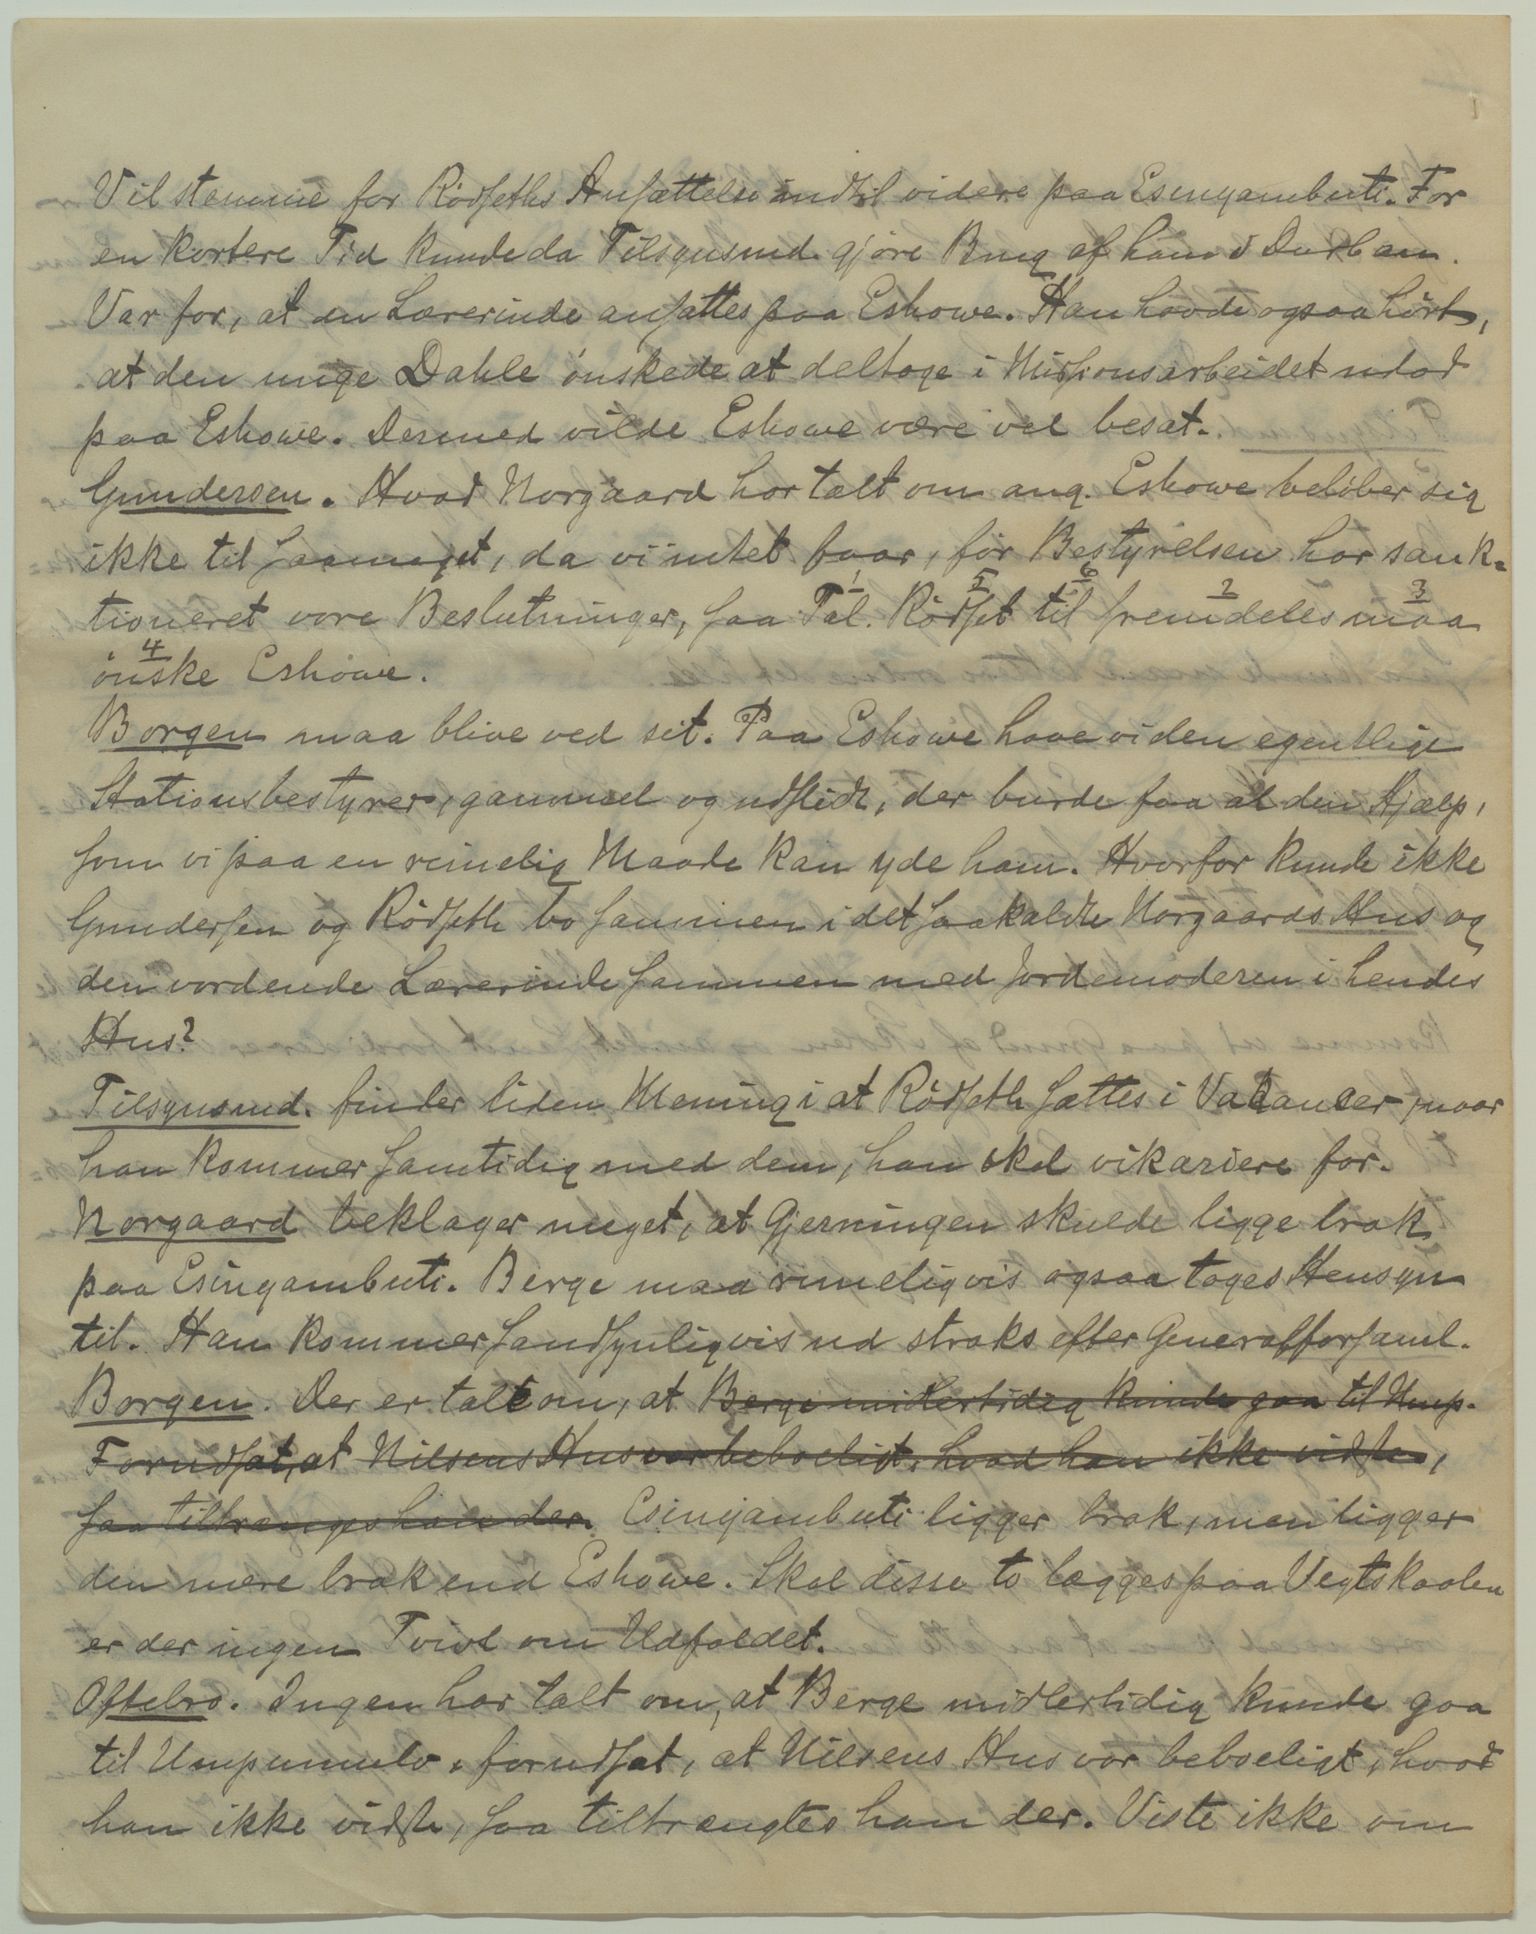 Vil stemme for Rödseths Ansættelse indtil videre paa Esinyambuti. For
en kortere Tid kunde da Tilsynsmd. gjöre Brug af ham i Durban.
Var for, at en Lærerinde ansattes paa Eshowe. Han havde ogsaa hört,
at den unge Dahle önskede at deltage i Missionsarbeidet udad
paa Eshowe. Dermed vilde Eshowe være vel besat.
Gundersen. Hvad Norgaard har talt om ang. Eshowe belöber sig
ikke til saameget, da vi intet faar, för Bestyrelsen har sank-
tioneret vore Beslutninger, saa Tal. Rödset til fremdeles maa
1 5 6 2 3
4
önske Eshowe.
Borgen maa blive ved sit. Paa Eshowe have vi den egentlige
Stationsbestyrer, gammel og udslidt, der burde faa al den Hjælp,
som vi paa en rimelig Maade kan yde ham. Hvorfor kunde ikke
Gundersen og Rödseth bo sammen i det saakaldte Norgaards Hus og
den vordende Lærerinde sammen med Jordemoderen i hendes
Hus?
Tilsynsmd. finder liden Mening i at Rödseth sættes i Vacancer, naar
han kommer samtidig med dem, han skal vikariere for.
Norgaard beklager meget, at Gjerningen skulde ligge brak
paa Esinyambuti. Berge maa rimeligvis ogsaa tages Hensyn
til. Han kommer sandsynligvis ud straks efter Generalforsaml.
Borgen. Der er talt om, at Berge midlertidig kunde gaa til Ump.
Forudsat, at Nilsens Hus var beboeligt, hvad han ikke vidste,
saa tiltrænges han der. Esinyambuti ligger brak, men ligger
den mere brak end Eshowe. Skal disse to lægges paa Vegtskaalen
er der ingen Tvivl om Udfaldet.
Oftebro. Ingen har talt om, at Berge midlertidig kunde gaa
til Umpumulo, forudsat, at Nilsens Hus var beboeligt, hvad
han ikke vidste, saa tiltrængtes han der. Viste ikke om